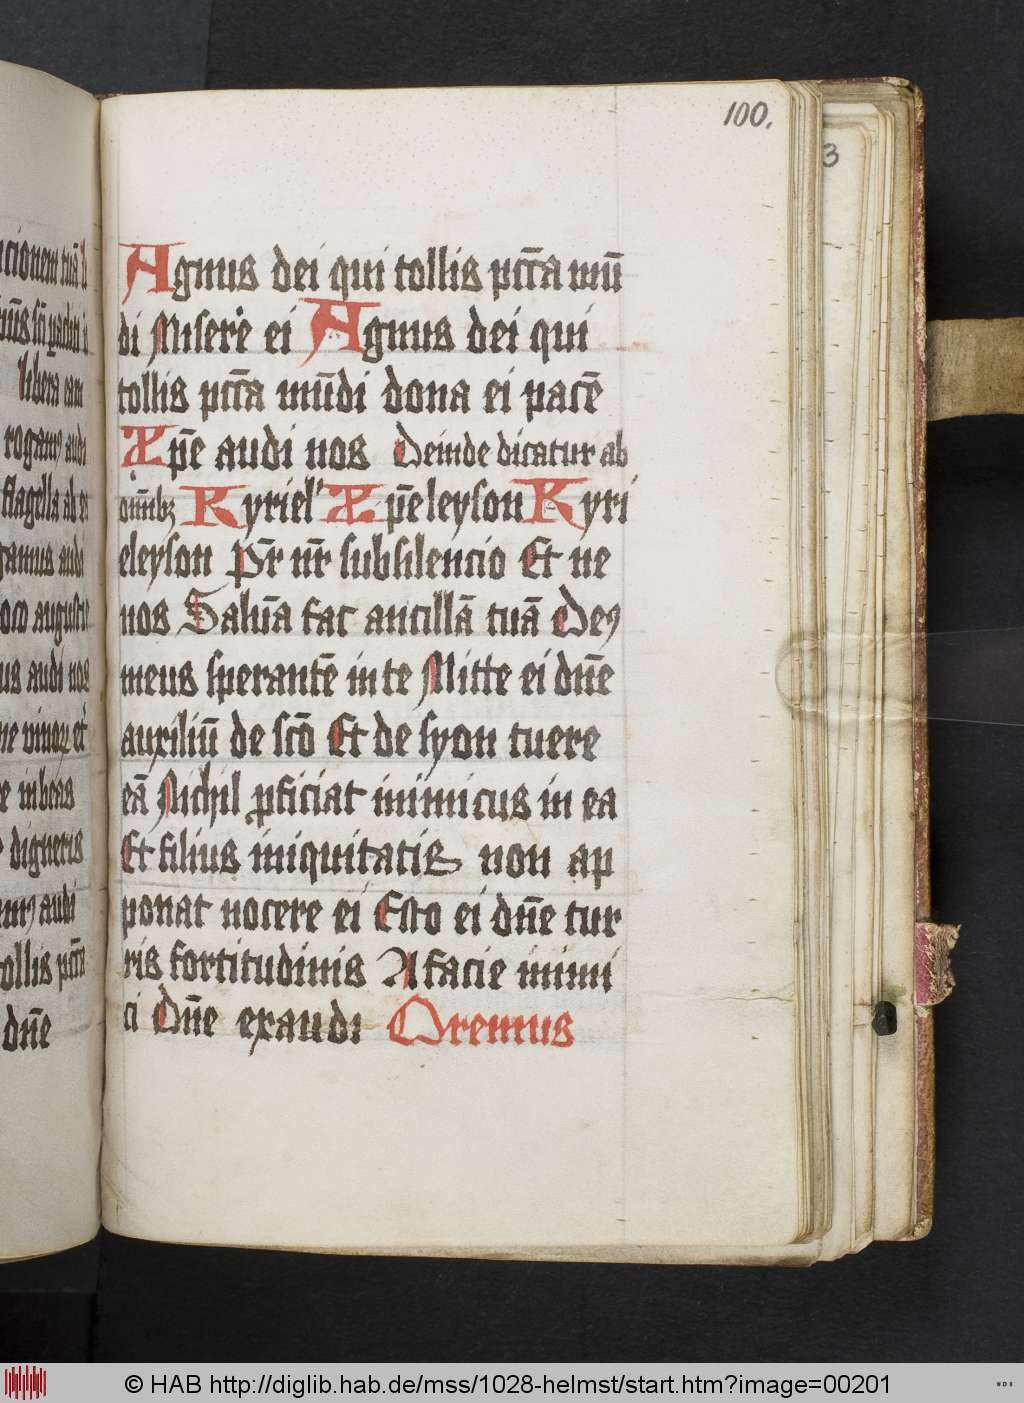 100.
3
cionem tuā
libera eam
rogamꝰ audi
flagella ab
gamus audi
us audi nos
digneris
audi
tollis pctā
dn̄e
Agnus dei qui tollis pctā mū
di Miserē ei Agnus dei qui
tollis pctā mūdi dona ei pacē
Xpē audi nos Deinde dicatur ab
omībꝫ Kyriel' Xpēleyson Kyri
eleyson Pr̄ nr̄ sub silencio Et ne
nos Saluā fac ancillā tuā Deꝰ
meus sperantē in te Mitte ei dn̄e
auxiliū de scō Et de syon tuere
eā Nichil ꝓficiat inimicus in ea
Et filius iniquitatis non ap
ponat nocere ei Esto ei dn̄e tur
ris fortitudinis A facie inimi
ci Dn̄e exaudi Oremus
© HAB http://diglib.hab.de/mss/1028-helmst/start.htm?image=00201